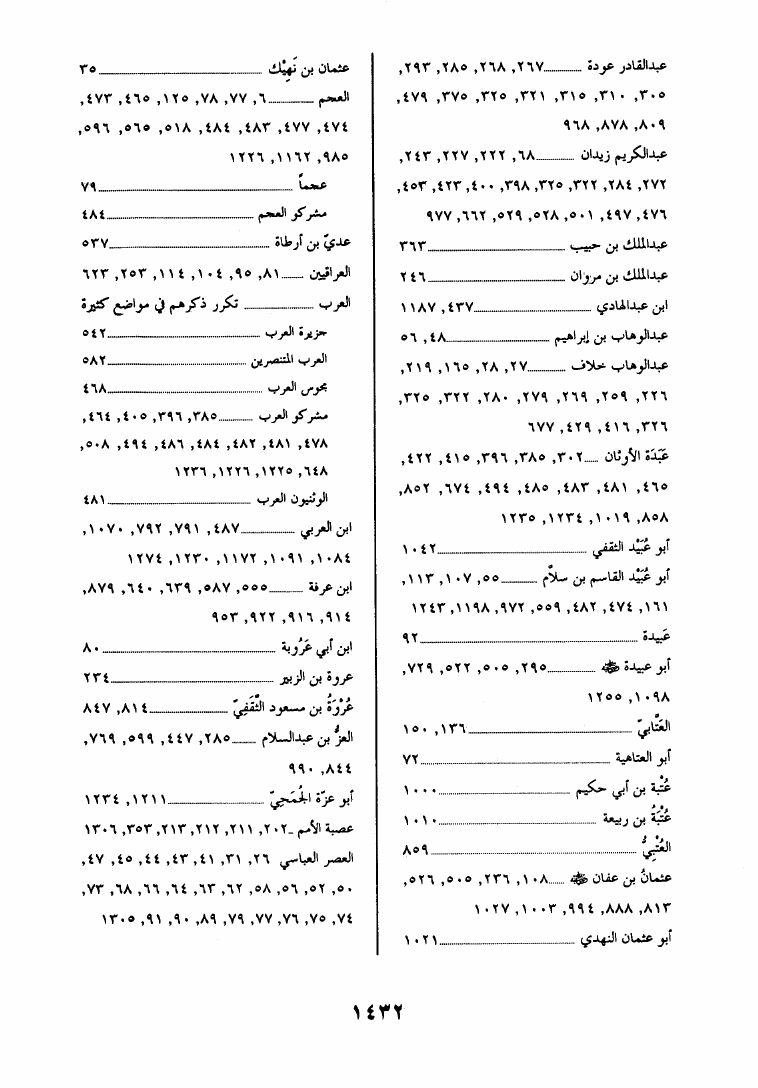 عبدالقادر عودة ........... ٢٦٧, ٢٦٨, ٢٨٥, ٢٩٣,
٣٠٥, ٣١٠, ٣١٥, ٣٢١, ٣٢٥, ٣٧٥, ٤٧٩,
٨٠٩, ٨٧٨, ٩٦٨
عبدالكريم زيدان ........... ٦٨, ٢٢٢, ٢٢٧, ٢٤٣,
٢٧٢, ٢٨٤, ٣٢٢, ٣٢٥, ٣٩٨, ٤٠٠, ٤٢٣, ٤٥٣,
٤٧٦, ٤٩٧, ٥٠١, ٥٢٨, ٥٢٩, ٦٦٢, ٩٧٧
عبدالملك بن حبيب ........... ٣٦٣
عبدالملك بن مروان ........... ٢٤٦
ابن عبدالهادي ........... ٤٣٧, ١١٨٧
عبدالوهاب بن إبراهيم ........... ٤٨, ٥٦
عبدالوهاب خلاف ........... ٢٧, ٢٨, ١٦٥, ٢١٩,
٢٢٦, ٢٥٩, ٢٦٩, ٢٧٩, ٢٨٠, ٣٢٢, ٣٢٥,
٣٢٦, ٤١٦, ٤٢٩, ٦٧٧
عَبَدَة الأوثان ........... ٣٠٢, ٣٨٥, ٣٩٦, ٤١٥, ٤٢٢,
٤٦٥, ٤٨١, ٤٨٣, ٤٨٥, ٤٩٤, ٦٧٤, ٨٥٢,
٨٥٨, ١٠١٩, ١٢٣٤, ١٢٣٥
أبو عُبَيْد الثقفي ........... ١٠٤٢
أبو عُبَيْد القاسم بن سلاّم ........... ٥٥, ١٠٧, ١١٣,
١٦١, ٤٧٤, ٤٨٢, ٥٥٩, ٩٧٢, ١١٩٨, ١٢٤٣
عَبيدة ........... ٩٢
أبو عبيدة ﷺ ........... ٢٩٥, ٥٠٥, ٥٢٢, ٧٢٩,
١٠٩٨, ١٢٥٥
العَتَّابيّ ........... ١٣٦, ١٥٠
أبو العتاهية ........... ٧٢
عُتْبة بن أبي حكيم ........... ١٠٠٠
عُتْبَةُ بن ربيعة ........... ١٠١٠
العُتْبِيُّ ........... ٨٥٩
عثمانُ بن عفان ........... ١٠٨, ٢٣٦, ٥٠٥, ٥٢٦,
٨١٣, ٨٨٨, ٩٩٤, ١٠٠٣, ١٠٢٧
أبو عثمان النهدي ........... ١٠٢١
عثمان بن نَهِيْك ........... ٣٥
العجم ........... ٦, ٧٧, ٧٨, ١٢٥, ٤٦٥, ٤٧٣,
٤٧٤, ٤٧٧, ٤٨٣, ٤٨٤, ٥١٨, ٥٦٥, ٥٩٦,
٩٨٥, ١١٦٢, ١٢٢٦
عجماً ........... ٧٩
مشركو العجم ........... ٤٨٤
عديّ بن أرطاة ........... ٥٣٧
العراقيين ........... ٨١, ٩٥, ١٠٤, ١١٤, ٢٥٣, ٦٢٣
العرب ........... تكرر ذكرهم في مواضع كثيرة
جزيرة العرب ........... ٥٤٢
العرب المتنصرين ........... ٥٨٢
مجوس العرب ........... ٤٦٨
مشركو العرب ........... ٣٨٥, ٣٩٦, ٤٠٥, ٤٦٤,
٤٧٨, ٤٨١, ٤٨٢, ٤٨٤, ٤٨٦, ٤٩٤, ٥٠٨,
٦٤٨, ١٢٢٥, ١٢٢٦, ١٢٣٦
الوثنيون العرب ........... ٤٨١
ابن العربي ........... ٤٨٧, ٧٩١, ٧٩٢, ١٠٧٠,
١٠٨٤, ١٠٩١, ١١٧٢, ١٢٣٠, ١٢٧٤
ابن عرفة ........... ٥٥٥, ٥٨٧, ٦٣٩, ٦٤٠, ٨٧٩,
٩١٤, ٩١٦, ٩٢٢, ٩٥٣
ابن أبي عَرُوبة ........... ٨٠
عروة بن الزبير ........... ٢٣٤
عُرْوَةُ بن مسعود الثَّقَفِيّ ........... ٨١٤, ٨٤٧
العزُّ بن عبدالسلام ........... ٢٨٥, ٤٤٧, ٥٩٩, ٧٦٩,
٨٤٤, ٩٩٠
أبو عزّة الجُمَحِيّ ........... ١٢١١, ١٢٣٤
عصبة الأمم .. ٢٠٢, ٢١١, ٢١٢, ٢١٣, ٣٥٣, ١٣٠٦
العصر العباسي ٢٦, ٣١, ٤١, ٤٣, ٤٤, ٤٥, ٤٧,
٥٠, ٥٢, ٥٦, ٥٨, ٦٢, ٦٣, ٦٤, ٦٦, ٦٨, ٧٣,
٧٤, ٧٥, ٧٦, ٧٧, ٧٩, ٨٩, ٩٠, ٩١, ١٣٠٥
١٤٣٢